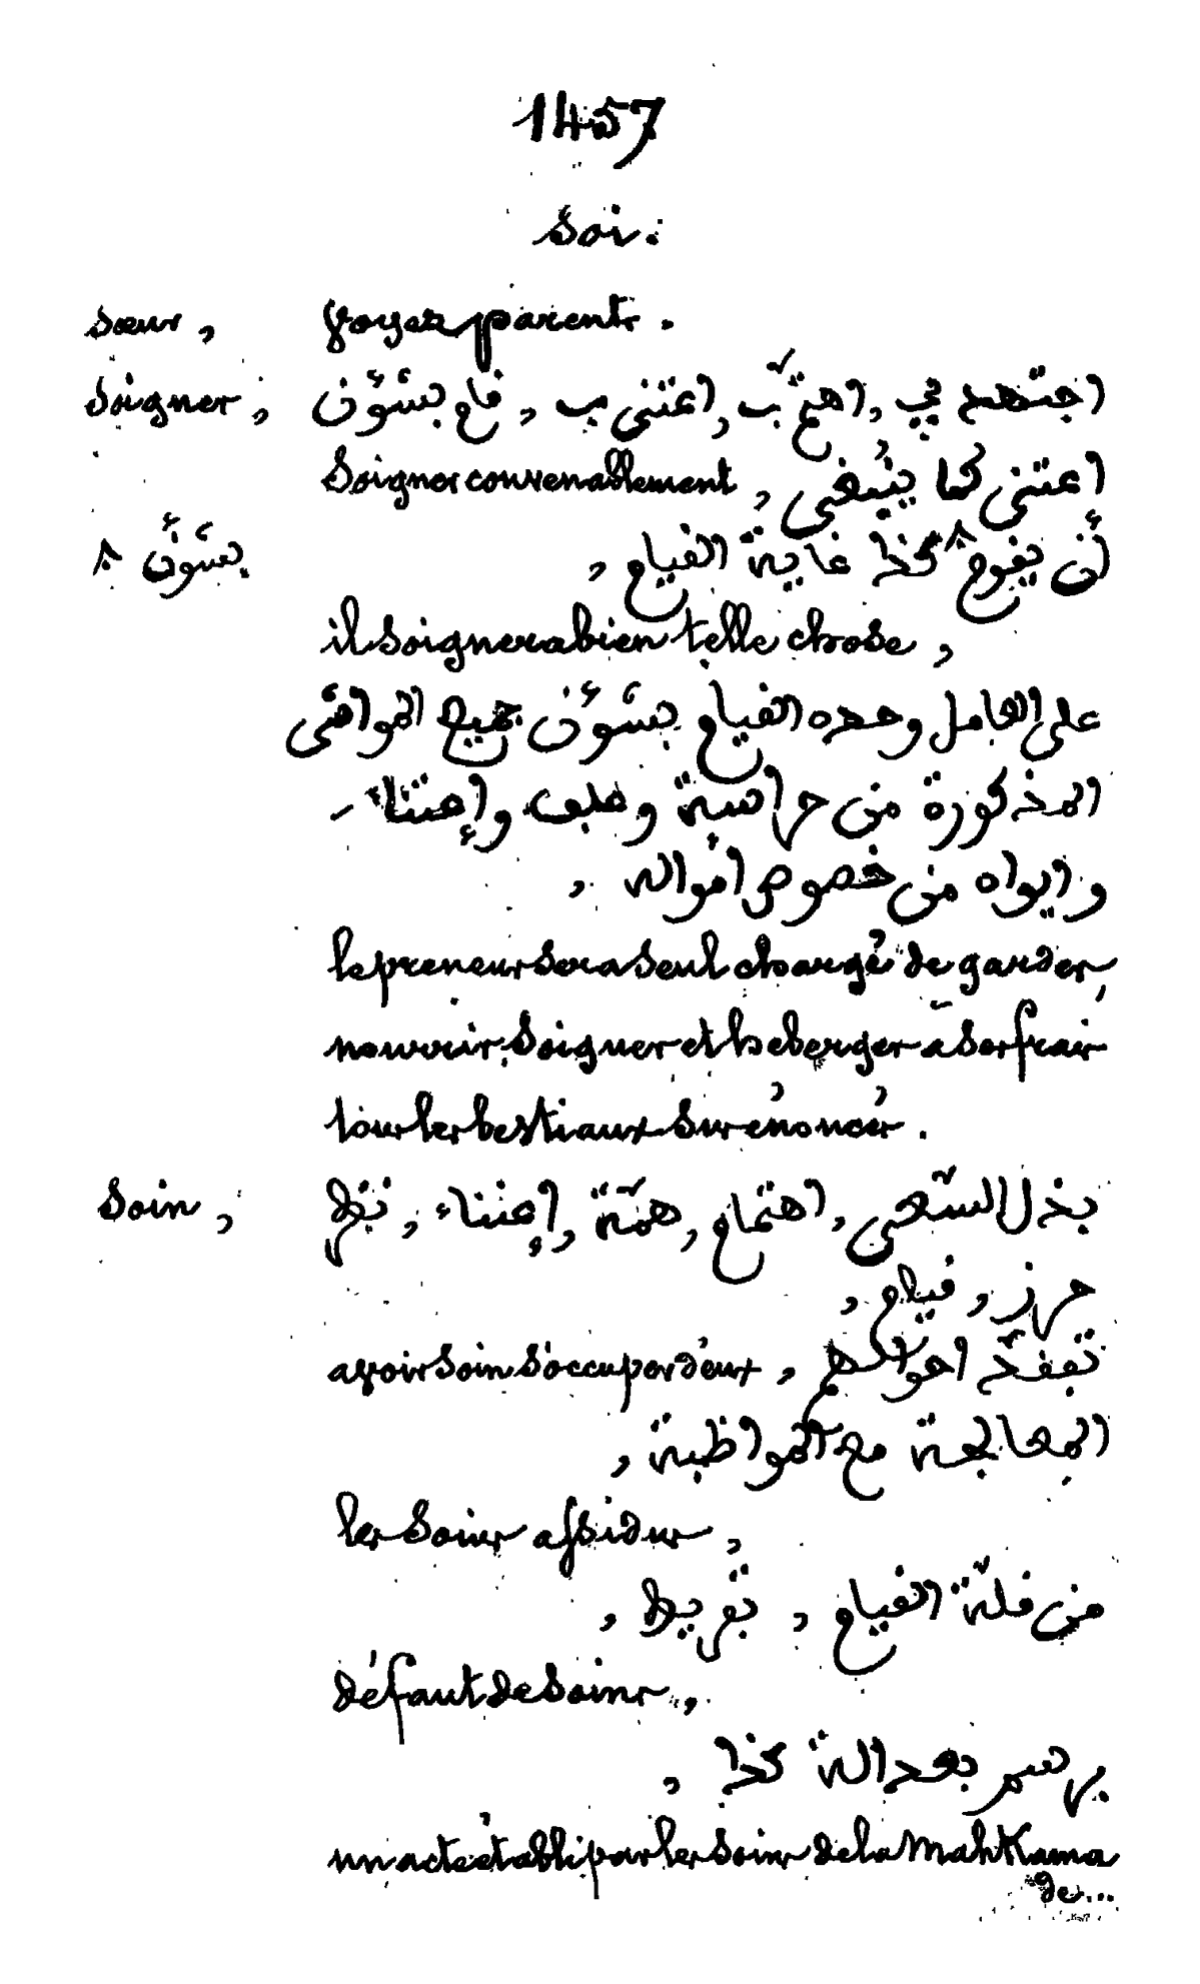 1457
Soi.
sœur, Voyez parents.
Soigner, اجتهد في, اهتمّ ب, اعتنى ب, قام بشؤن
Soigner convenablement, اعتنى كما ينبغي
أن يقوم ^ كذا غاية القيام, بشؤن ^
il soignera bien telle chose,
على العامل وحده القيام بشؤن جميع المواشى
المذكورة من حراسة وعلف وإعتناء -
وايواه من خصوص أمواله,
le preneur sera seul chargé de garder,
nourrir, soigner et héberger à ses frais
tous les bestiaux sus énoncés.
Soin, بذل السّعي, اهتمام, همّة, إعتناء, نظر
حرز, قيام,
avoir soin s'occuper d'eux, تفقّد احوالهم
المعالجة مع المواظبة,
les soins assidus,
من قلّة القيام, تفريط,
défaut de soins,
برسم بعدالة كذا,
un acte établi par les soins de la Mahkama
de...